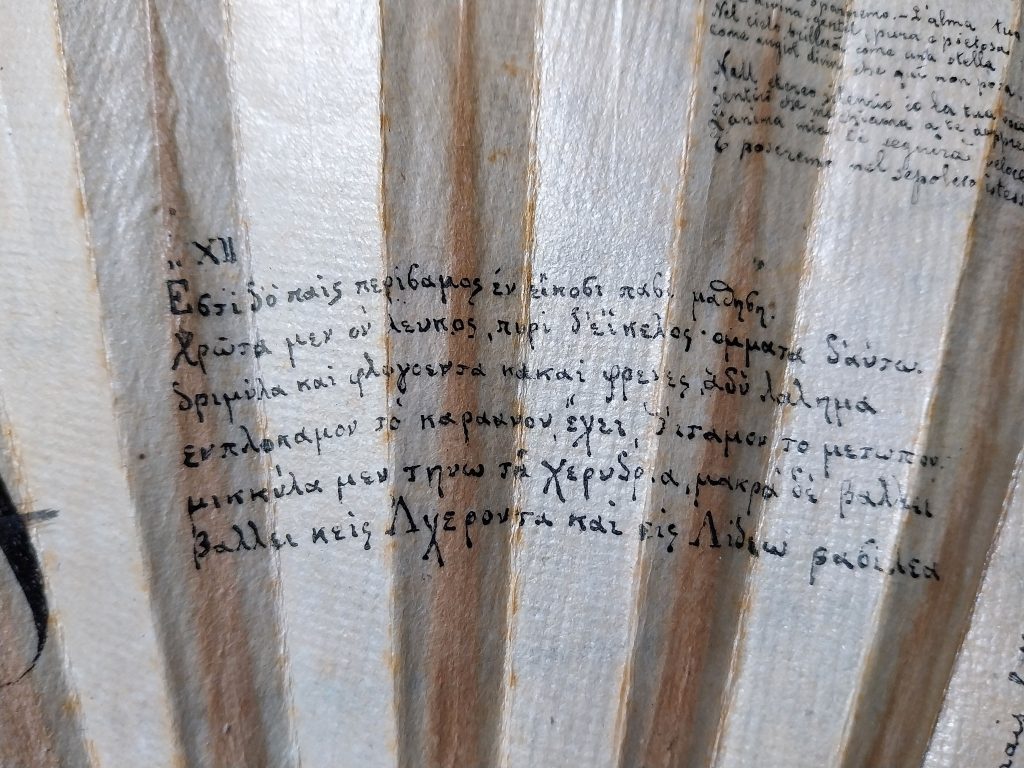 Nel cielo brillerà come una stella
come angiol divino che quì non posa.
sentirò che mi chiama a te
L'anima mia te seguirà veloce
E poseremo nel sepolcro istess
„ XII „
Εστί δ'ὀ παὶς περίσαμος, ἐν εἴκοσι πάσι μάθηση.
Χρῶτα μεν οὐ λευκος, πυρὶ δ'εἴκελος· ομματα δ'αὐτω.
δριμύλα καὶ φλογοεντα κακαὶ φρενες, ἀδὺ λάλημα
ενπλοκαμον τὸ καρaανον, ἔχει, δ'ιταμον το μετωπον.
μικκύλα μεν τηνω τὰ χερυδρια, μακρὰ δὲ βαλλει
βαλλει κεἰς Αχεροντα καὶ εἰς Αἰδεω βασιλεα